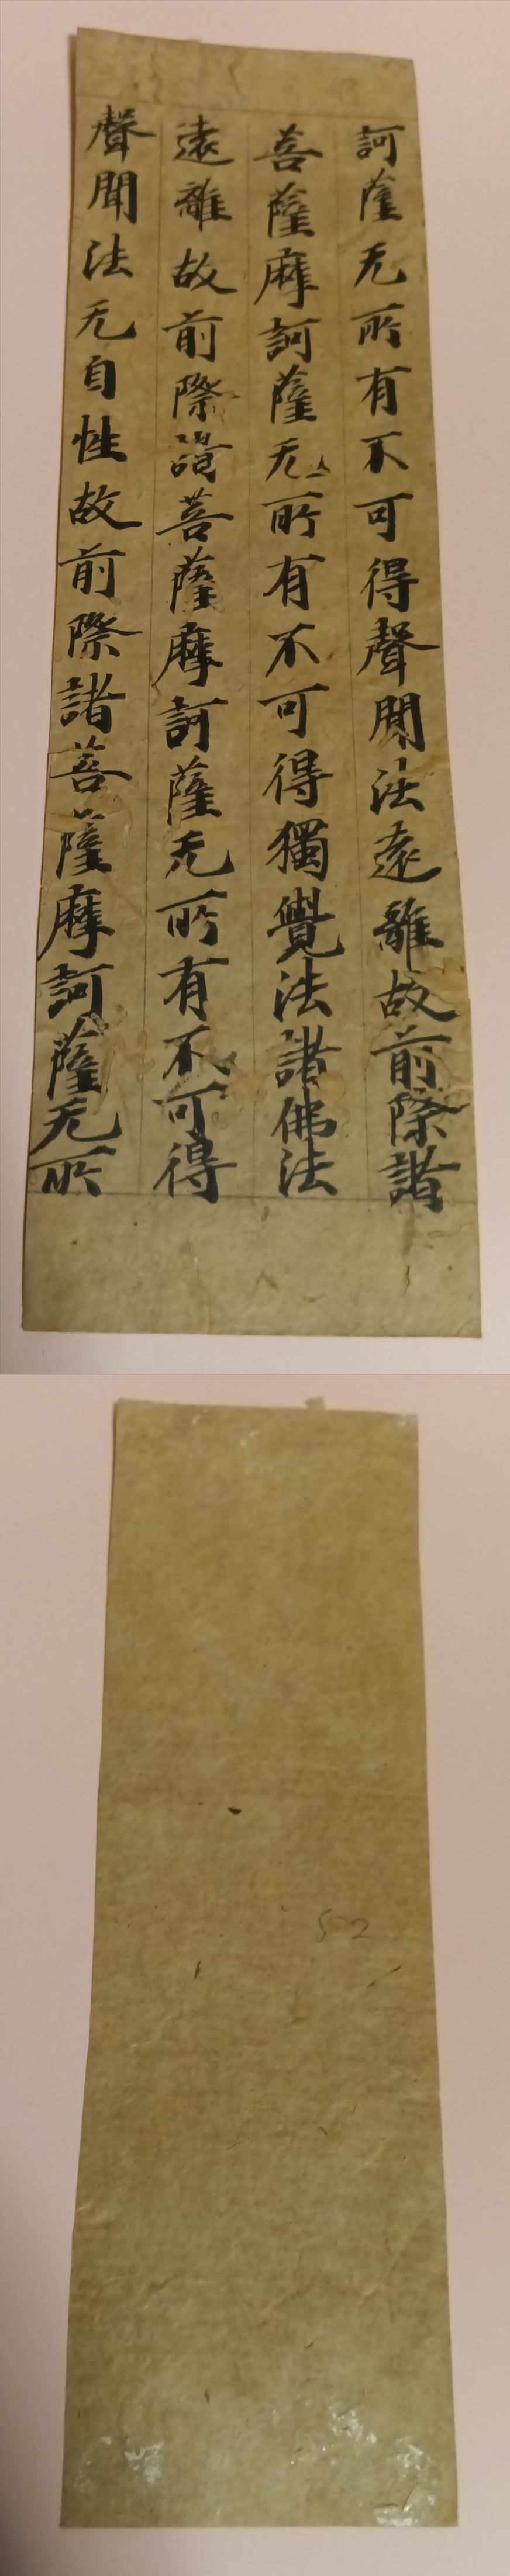 訶薩无所有不可得聲聞法遠離故前際諸
菩薩摩訶薩无所有不可得獨覺法諸佛法
遠離故前際諸菩薩摩訶薩无所有不可得
聲聞法无自性故前際諸菩薩摩訶薩无所
502